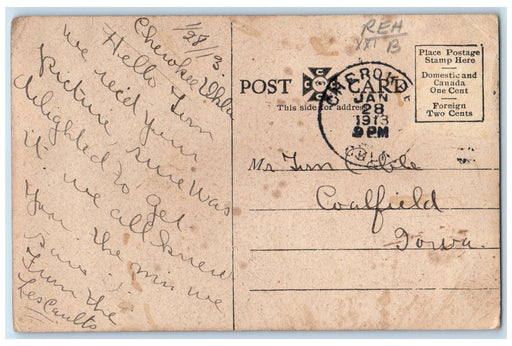 1/28/13.
Cherokee Okla
Hello Tom
we rec'd your
picture, sure was
delighted to get
it. we all knew
you the min we
saw it.
From the
Lescaults
REH
XXI B
POST CARD
This side for address
CHEROKEE
JAN
28
1913
9 PM
OKLA
Place Postage
Stamp Here
Domestic and
Canada
One Cent
Foreign
Two Cents
Mr Tom Cable
Coalfield
Iowa.